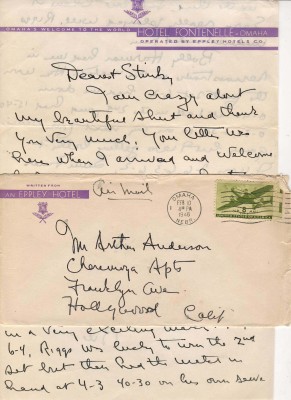 OMAHA'S WELCOME TO THE WORLD
HOTEL FONTENELLE • OMAHA
OPERATED BY EPPLEY HOTELS CO.
Dearest Stinky
I am crazy about
my beautiful shirt and thank
you very much. Your letter was
here when I arrived and welcome
WRITTEN FROM
AN EPPLEY HOTEL
Air Mail
OMAHA
FEB 10
PM
1946
NEBR.
Mr Arthur Anderson
Apts
Franklyn Ave
Hollywood Calif
in a very exciting
6-4, Riggs was lucky to win the 2nd
set but then had the match in
hand at 4-3 40-30 on his own serve